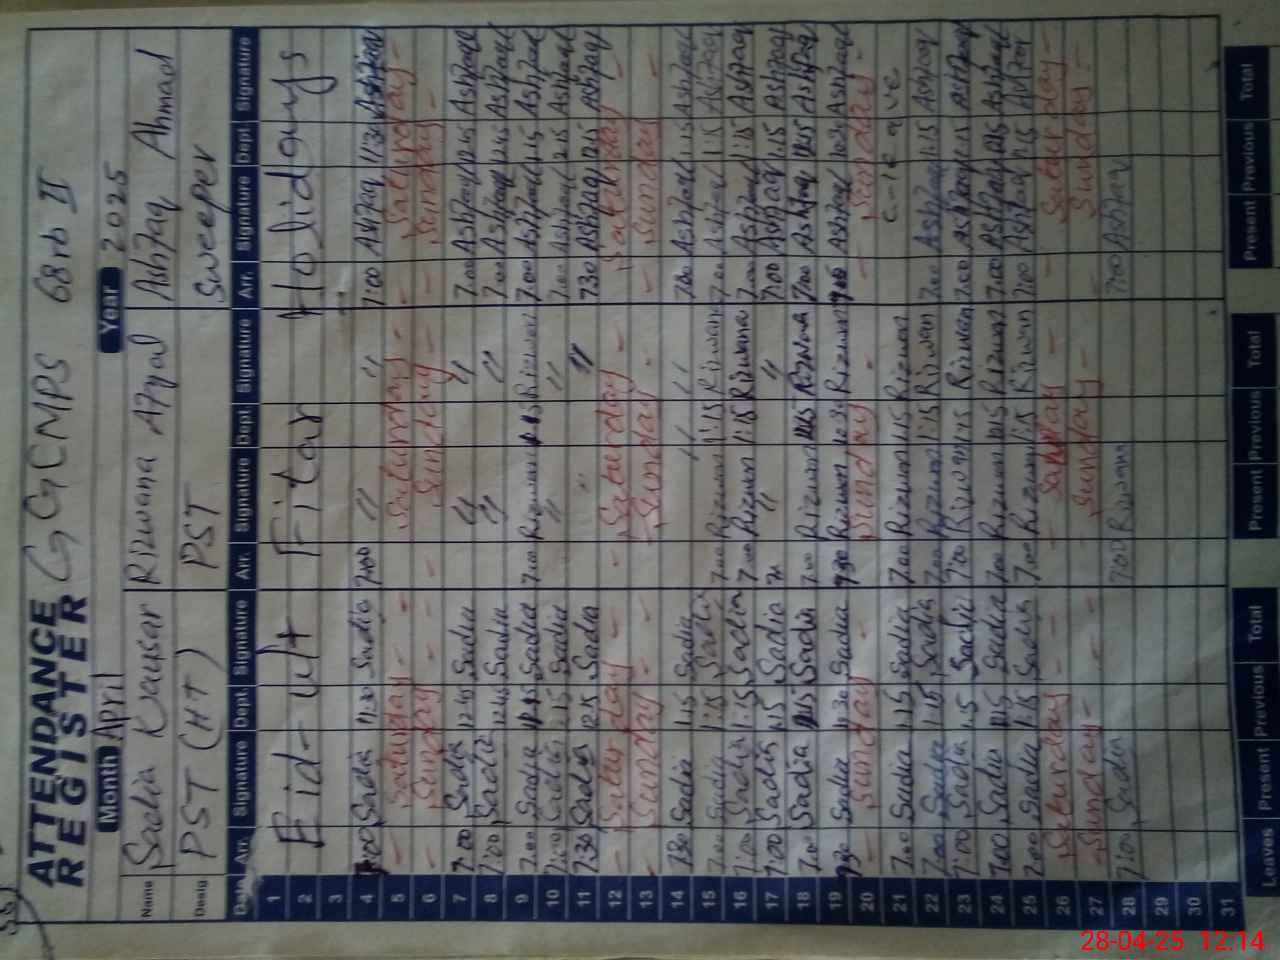 ATTENDANCE REGISTER GGCMPS 68rb II
Month April Year 2025
Name Sadia Kausar Rizwana Afzal Ashfaq Ahmad
Desig PST (HT) PST Sweeper
Arr. Signature Dept. Signature Arr. Signature Dept. Signature Arr. Signature Dept. Signature
1 Eid-ul-Fitar Holidays
2
3
4 7:00 Sadia 11:30 Sadia 7:00 〃 〃 7:00 Ashfaq 11:30 Ashfaq
5 Saturday Saturday Saturday
6 Sunday Sunday Sunday
7 7:00 Sadia 12:45 Sadia 〃 〃 7:00 Ashfaq 12:45 Ashfaq
8 7:00 Sadia 12:45 Sadia 〃 〃 7:00 Ashfaq 12:45 Ashfaq
9 7:00 Sadia Sadia 7:00 Rizwana Rizwan 7:00 Ashfaq 1:15 Ashfaq
10 7:00 Sadia 1:15 Sadia 〃 〃 7:00 Ashfaq Ashfaq
11 7:30 Sadia 12:15 Sadia 〃 〃 7:30 Ashfaq 12:15 Ashfaq
12 Saturday Saturday Saturday
13 Sunday Sunday Sunday
14 7:30 Sadia 1:15 Sadia 7:00 Ashfaq 1:15 Ashfaq
15 7:00 Sadia 1:15 Sadia 7:00 Rizwan 1:15 Rizwana 7:00 Ashfaq 1:15 Ashfaq
16 7:00 Sadia 1:15 Sadia 7:00 Rizwan 1:15 Rizwana 7:00 Ashfaq 1:15 Ashfaq
17 7:00 Sadia 1:15 Sadia 〃 〃 7:00 Ashfaq 1:15 Ashfaq
18 7:00 Sadia Sadia 7:00 Rizwan Rizwana 7:00 Ashfaq Ashfaq
19 7:30 Sadia Sadia 7:30 Rizwan 10:30 Rizwan Ashfaq 10:30 Ashfaq
20 Sunday Sunday Sunday
21 7:00 Sadia 1:15 Sadia 7:00 Rizwan 1:15 Rizwan c-leave
22 7:00 Sadia 1:15 Sadia 7:00 Rizwan 1:15 Rizwan 7:00 Ashfaq 1:15 Ashfaq
23 7:00 Sadia 1:15 Sadia 7:00 Rizwan 1:15 Rizwan 7:00 Ashfaq 1:15 Ashfaq
24 7:00 Sadia Sadia 7:00 Rizwan Rizwan 7:00 Ashfaq Ashfaq
25 7:00 Sadia 1:15 Sadia 7:00 Rizwan 1:15 Rizwan 7:00 Ashfaq 1:15 Ashfaq
26 Saturday Saturday Saturday
27 Sunday Sunday Sunday
28 7:00 Sadia 7:00 Rizwana 7:00 Ashfaq
29
30
31
Leaves Present Previous Total Present Previous Total Present Previous Total
28-04-25 12:14